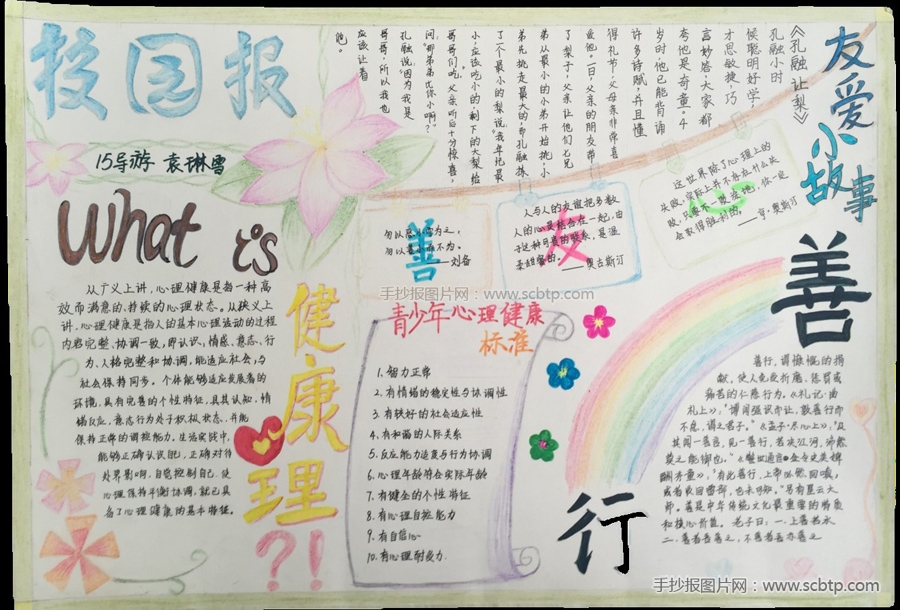 校园报
15导游 袁琳雪
What is
健康理
?!
从广义上讲，心理健康是指一种高
效而满意的、持续的心理状态。从狭义上
讲，心理健康是指人的基本心理活动的过程
内容完整、协调一致，即认识、情感、意志、行
为、人格完整和协调，能适应社会，与
社会保持同步。个体能够适应发展着的
环境，具有完善的个性特征，具其认知、情
绪反应、意志行为处于积极状态，并能
保持正常的调控能力。生活实践中，
能够正确认识自己，正确对待
外界影响，自觉控制自己，使
心理保持平衡协调，就已具
备了心理健康的基本特征。
友爱小故事
《孔融让梨》
孔融小时
候聪明好学，
才思敏捷，巧
言妙答，大家都
夸他是奇童。4
岁时，他已能背诵
许多诗赋，并且懂
得礼节，父母亲非常喜
爱他。一日，父亲的朋友带
了梨子，父亲让他们七兄
弟从最小的小弟开始挑，小
弟先挑走最大的，而孔融拣
了一个最小的梨说“我年纪最
小，应该吃小的，剩下的大梨给
哥哥们吃。”父亲听后十分惊喜，
问“那弟弟比你小啊？”
孔融说“因为我是
哥哥，所以我也
应该让着
他。
善
勿以恶小而为之，
勿以善小而不为。
——刘备
友
人与人的友谊，把多数
人的心灵结合在一起，由
于这种可贵的联系，是温
柔甜蜜的。
——奥古斯汀
心
这世界除了心理上的
失败，实际上并不存在什么失
败，只要不一败涂地，你一定
会取得胜利的。——亨·奥斯汀
手抄报图片网：www.scbtp.com
青少年心理健康
标准
1.智力正常
2.有情绪的稳定性与协调性
3.有较好的社会适应性
4.有和谐的人际关系
5.反应能力适度与行为协调
6.心理年龄符合实际年龄
7.有健全的个性特征
8.有心理自控能力
9.有自信心
10.有心理耐受力
善
行
善行，谓慷慨的捐
献，使人免受折磨、贫穷或
痛苦的仁慈行为。《礼记·曲
礼上》：“博闻强识而让，敦善行而
不怠，谓之君子。”《孟子·尽心上》：“及
其闻一善言，见一善行，若决江河，沛然
莫之能御也。”
手抄报图片网：www.scbtp.com